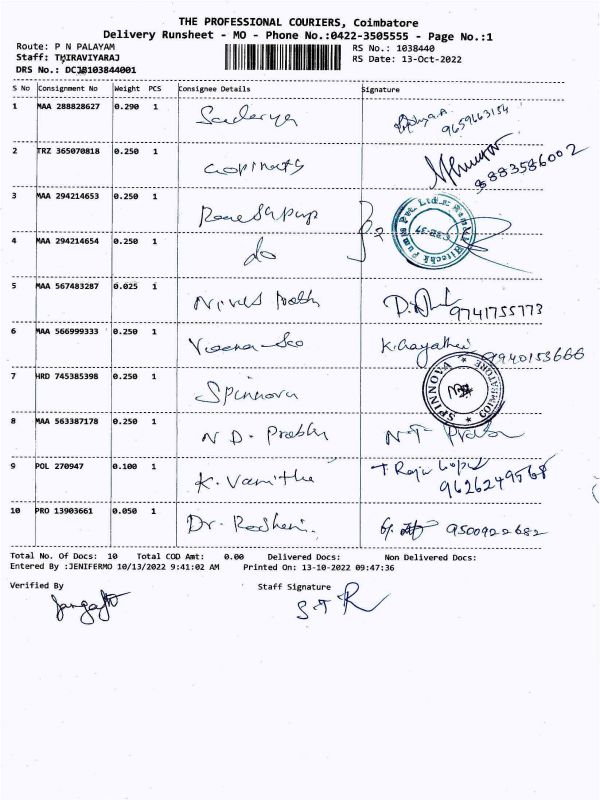 THE PROFESSIONAL COURIERS, Coimbatore
Delivery Runsheet - MO - Phone No.:0422-3505555 - Page No.:1
Route: P N PALAYAM RS No.: 1038440
Staff: THIRAVIYARAJ RS Date: 13-Oct-2022
DRS No.: DCJB103844001
S No Consignment No Weight PCS Consignee Details Signature
1 MAA 288828627 0.290 1 9659663154
2 TRZ 365070818 0.250 1 Gopinath 8883586002
3 MAA 294214653 0.250 1
4 MAA 294214654 0.250 1 do
5 MAA 567483287 0.025 1 9741755773
6 MAA 566999333 0.250 1 K. Gayathri 9940153666
7 HRD 745385398 0.250 1 Spinnova SPINNOVA COIMBATORE
8 MAA 563387178 0.250 1 N D. Prabhu N.T
9 POL 270947 0.100 1 K. Vanitha T Raju Gopal 9626249568
10 PRO 13903661 0.050 1 Dr. Roshani. 9500922682
Total No. Of Docs: 10 Total COD Amt: 0.00 Delivered Docs: Non Delivered Docs:
Entered By :JENIFERMO 10/13/2022 9:41:02 AM Printed On: 13-10-2022 09:47:36
Verified By Staff Signature
S T R